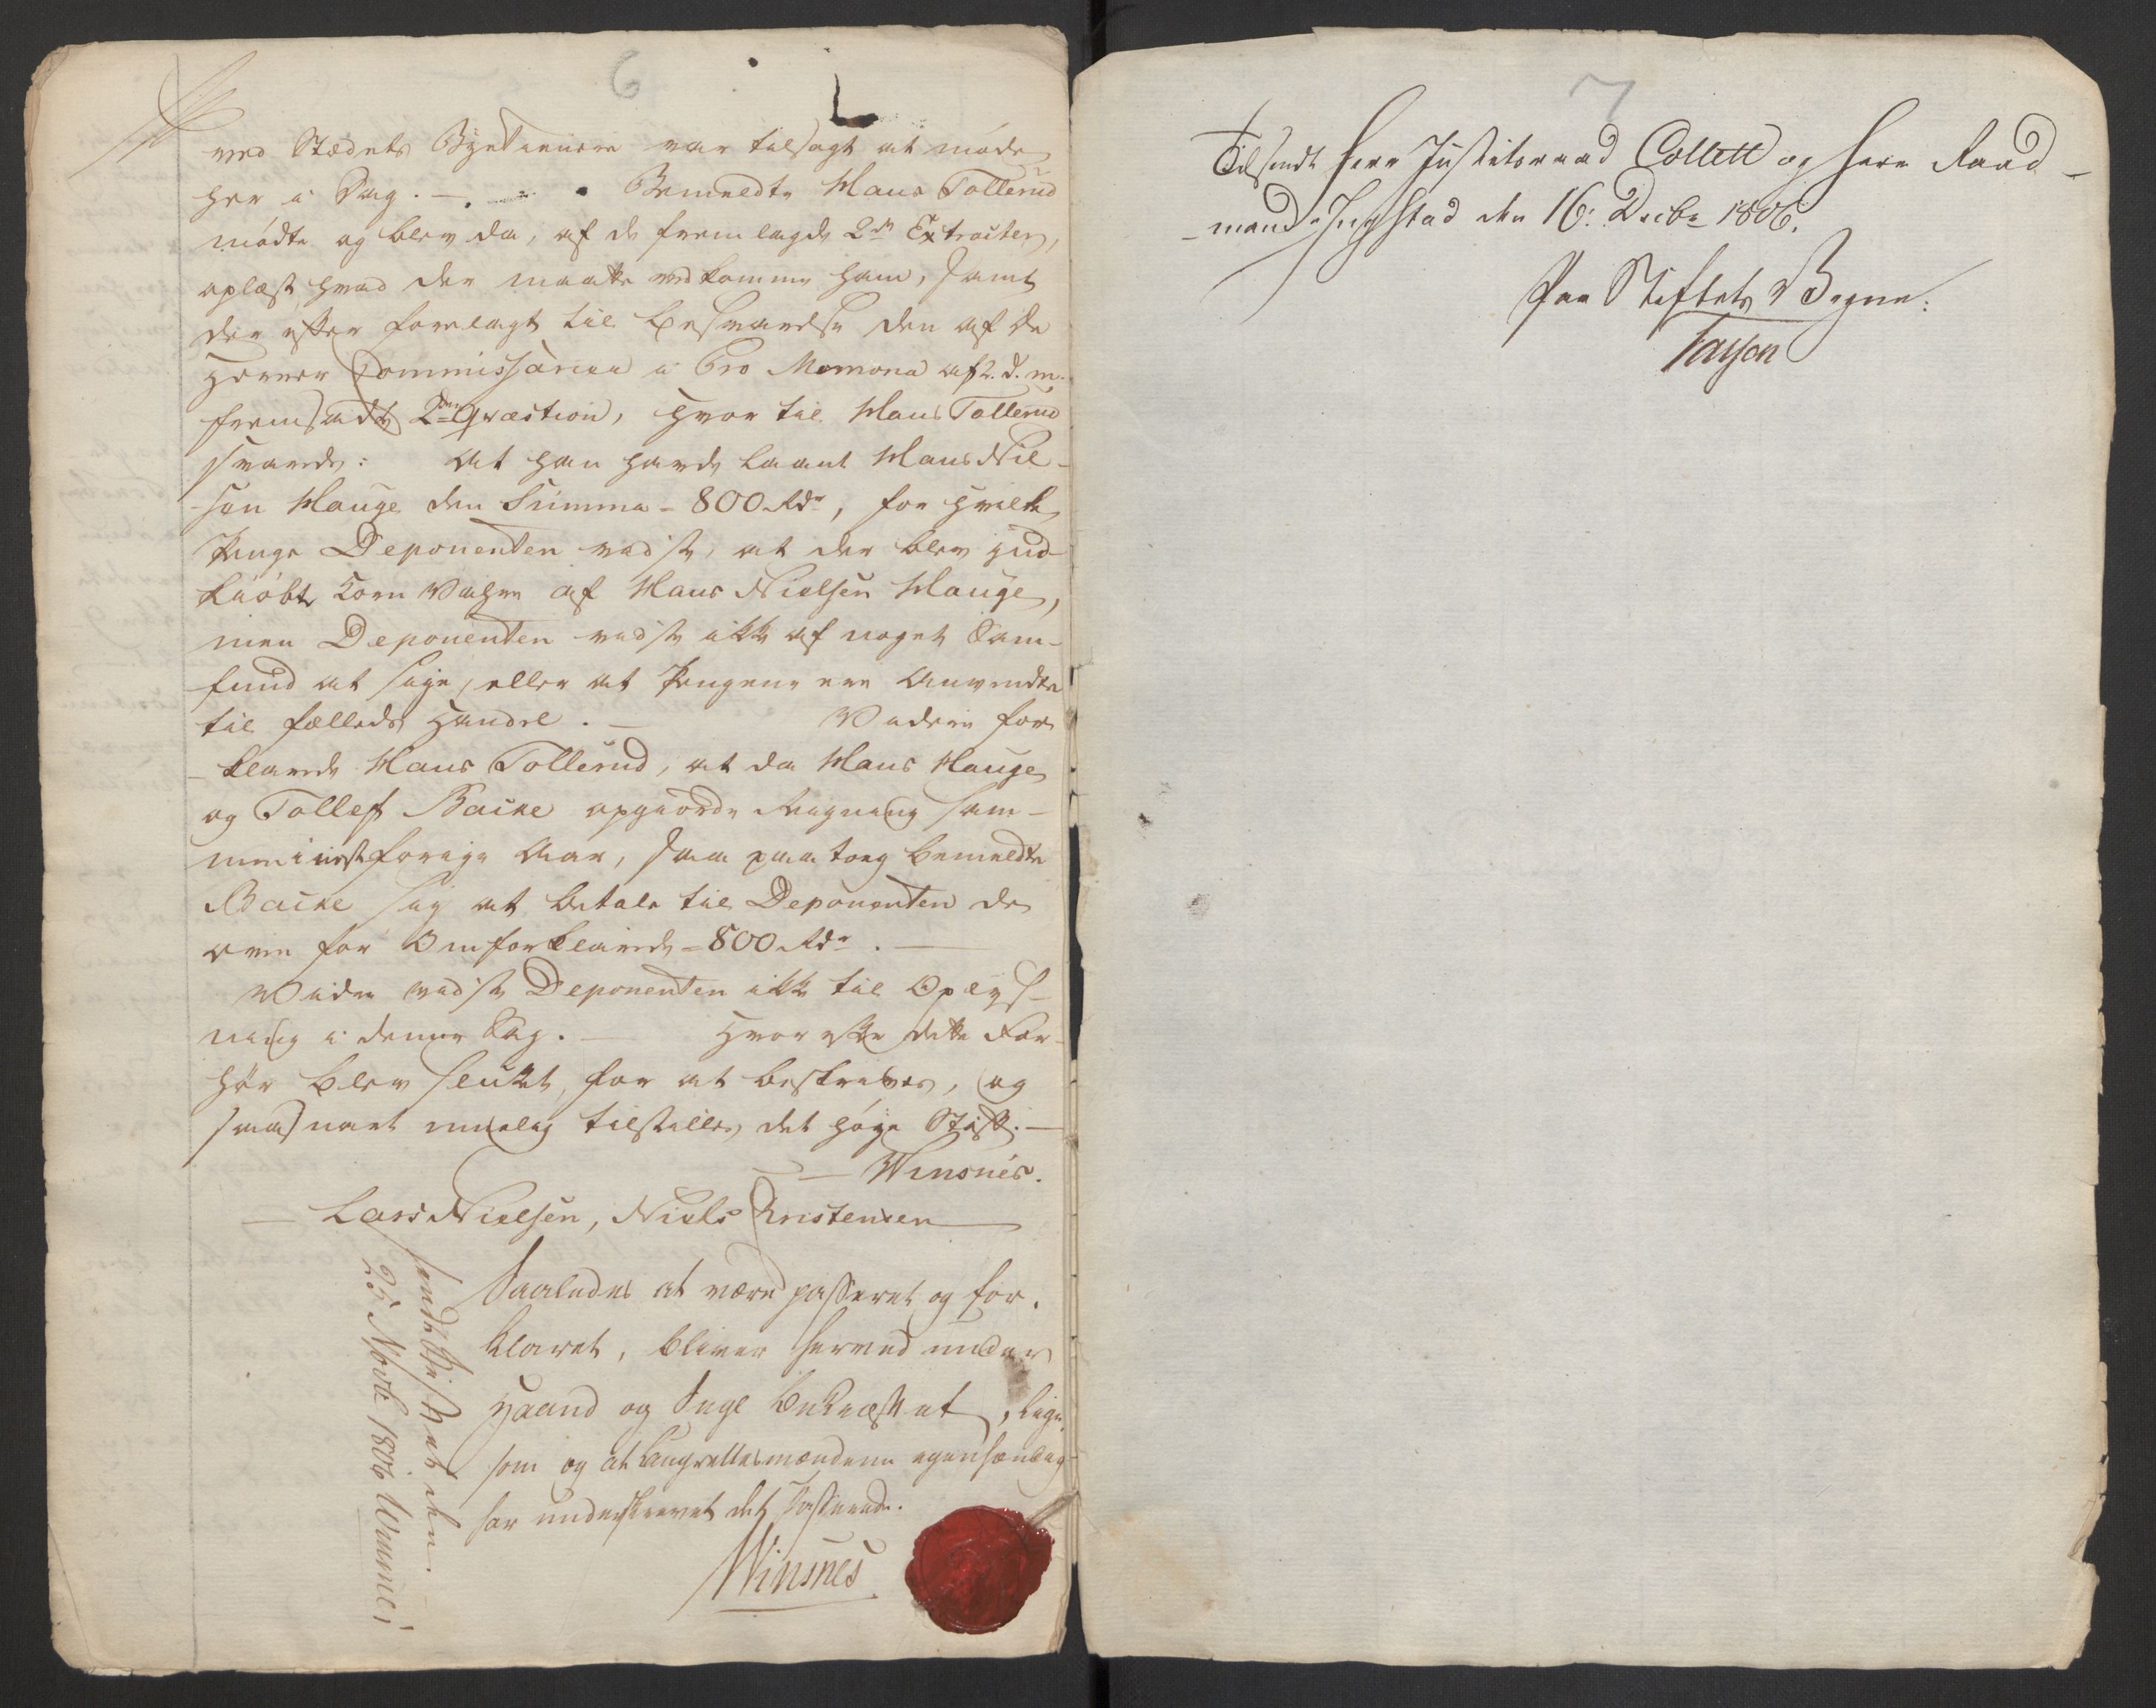 6
ved Stædets Byetienere var tilsagt at møde
her i Dag. — Bemeldte Hans Tollerud
mødte og blev da, af de fremlagde 2de Extracter,
oplæst hvad der maatte vedkomme ham, samt
der efter forelagt til besvarelse den af de
Herrer Commissairer i Pro Memoria af 2. d. m.
fremsadte 2den Qvæstion, hvor til Hans Tollerud
svarede: at han havde laant Hans Niel-
sen Hauge den Summa = 800 Rdr, for hvilke
Penge Deponenten vidste, at der blev ind-
kiøbt Korn Vahre af Hans Nielsen Hauge,
men Deponenten vidste ikke af noget Sam-
fund at sige, eller at Pengene ere Anvendte
til fælleds Handel. — Videre for-
klarede Hans Tollerud, at da Hans Hauge
og Tollef Bache opgiorde Regning sam-
men i nestforrige Aar, saa paatoeg bemeldte
Bache sig at betale til Deponenten de
oven for Omforklarede = 800 Rdr. —
Viden vidste Deponenten ikke til Oplys-
ning i denne Sag. — Hvor efter dette For-
hør blev sluttet, for at beskrives, og
saasnart muelig tilstilles det høye Stift. —
— Winsnes.
— Lars Nielsen, Niels Christensen —
Saaledes at være passeret og for-
klaret, bliver herved under
Haand og Segl bekræftet, lige-
som og at Laugrettesmændene egenhændig
har underskrevet det Passerede.
Winsnes
25 Novbr 1806 Winsnes
7
Tilsendt Herr Justitsraad Collett og Herr Raad-
mand Ingstad den 16: Decbr 1806.
Paa Stiftets Vegne: